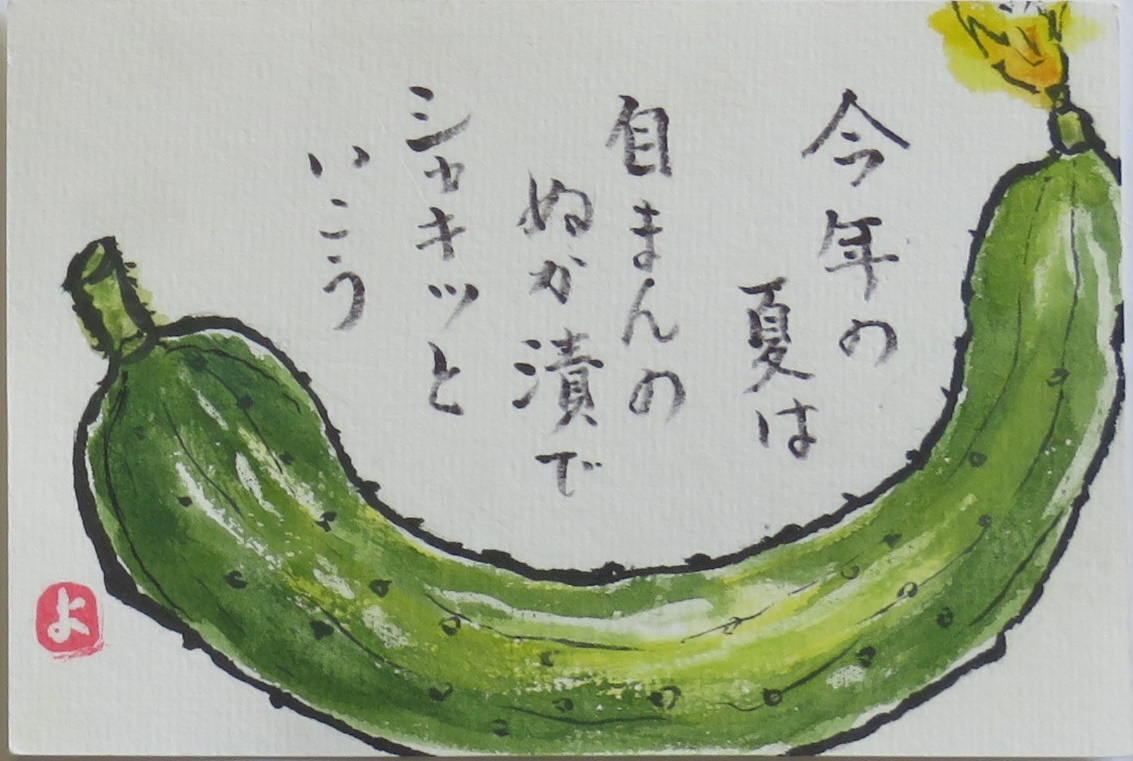 今年の
夏は
自まんの
ぬか漬で
シャキッと
いこう
よ